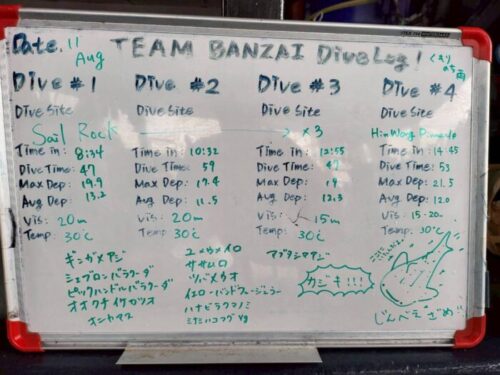 Date. 11 Aug
TEAM BANZAI Dive Log!
くもり のち 雨
Dive #1
Dive Site
Sail Rock
Time in: 8:34
Dive Time: 47
Max Dep: 19.9
Avg Dep: 13.2
Vis: 20m
Temp: 30℃
ギンガメアジ
シェブロンバラクーダ
ピックハンドルバラクーダ
オオクチイケカツオ
オニカマス
Dive #2
Dive Site
Time in: 10:32
Dive Time: 59
Max Dep: 17.4
Avg Dep: 11.5
Vis: 20m
Temp: 30℃
ユメウメイロ
ササムロ
ツバメウオ
イエローバンドフュージラー
ハナビラクマノミ
ミナミハコフグ yg
Dive #3
Dive Site
x3
Time in: 12:55
Dive Time: 47
Max Dep: 19
Avg Dep: 12.3
Vis: 15m
Temp: 30℃
マブタシマアジ
カジキ!!
Dive #4
Dive Site
HinWong Pinnacle
Time in: 14:45
Dive Time: 53
Max Dep: 21.5
Avg Dep: 12.0
Vis: 15-20m
Temp: 30℃
じんべえざめ!!